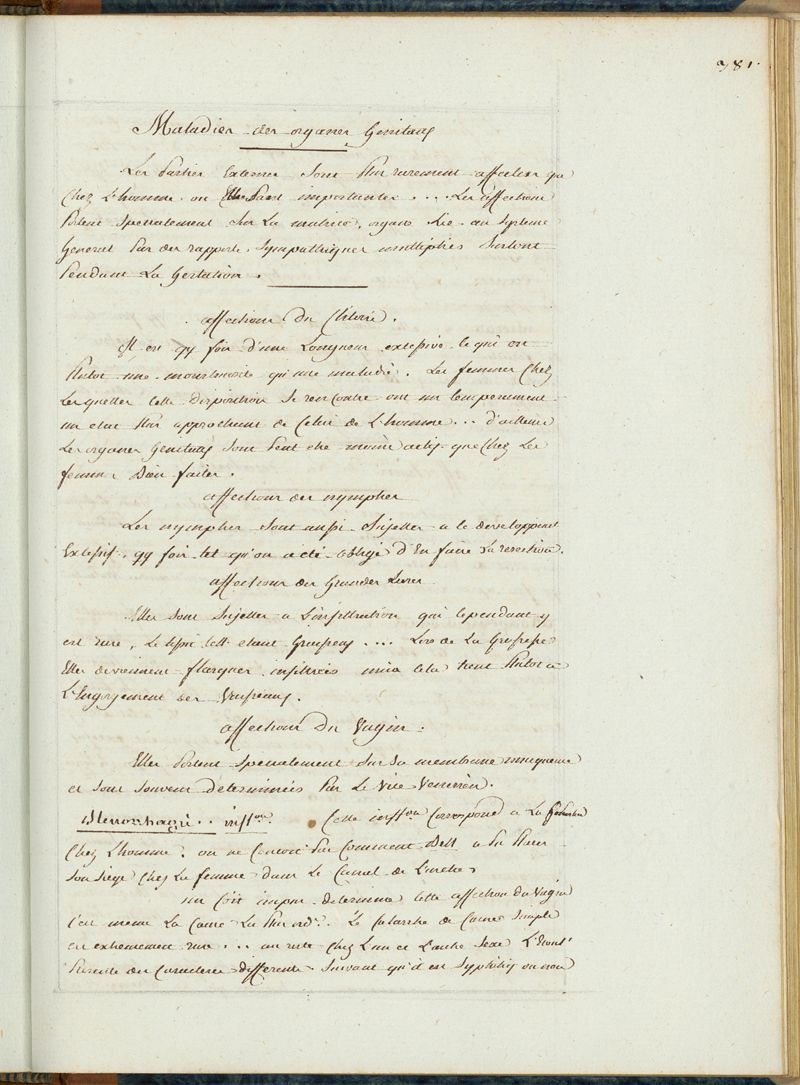 381.
Maladies des organes Genitaux
Les Parties Externes sont Plus rarement affectées que
Chez L'homme ou Elles sont importantes .... Les affections
Portent specialement sur La matrice, organe Lié au systeme
General Par des rapports sympathiques multipliés surtout
Pendant La Gestation.
affections du Clitoris.
Il est qq fois d'une Longueur excessive ce qui est
Plutot une monstruosité qu'une maladie. Les femmes Chez
Lesquelles cette disposition se rencontre ont un temperament
un etat Plus approchant de Celui de L'homme ... d'ailleurs
Les organes Genitaux sont Peut etre moins actifs que Chez Les
femmes Bien faites.
affections des nymphes
Les nymphes sont aussi sujettes a ce developpement
Excessif, qq fois tel qu'on a été obligé d'En faire La resection.
affections des Grandes Levres
Elles sont sujettes a L'infiltration qui cependant y
est rare, Le tissu cell. etant Graisseux .... Lors de La Grossesse
Elles deviennent flasques infiltrées mais cela tient Plutot a
L'Engorgement des Vaisseaux.
affections du Vagin.
Elles Portent specialement sur sa membrane muqueuse
et sont souvent determinées Par Le Vice Venerien.
Blenorrhagie .. infl.on Cette infl.on Correspond a La
Chez L'homme. on ne Concoit Pas Comment Bell a Pu Placer
son siege Chez La femme dans Le Canal de L'uretre
un Coït impur determine cette affection du Vagin
c'en meme La Cause La Plus ord.re. Le Catarrhe de Cause simple
est extremement rare ... au reste Chez L'un et L'autre sexe L'Ecoul.t
Presente des Caracteres differents suivant qu'il est syphilitiq ou non